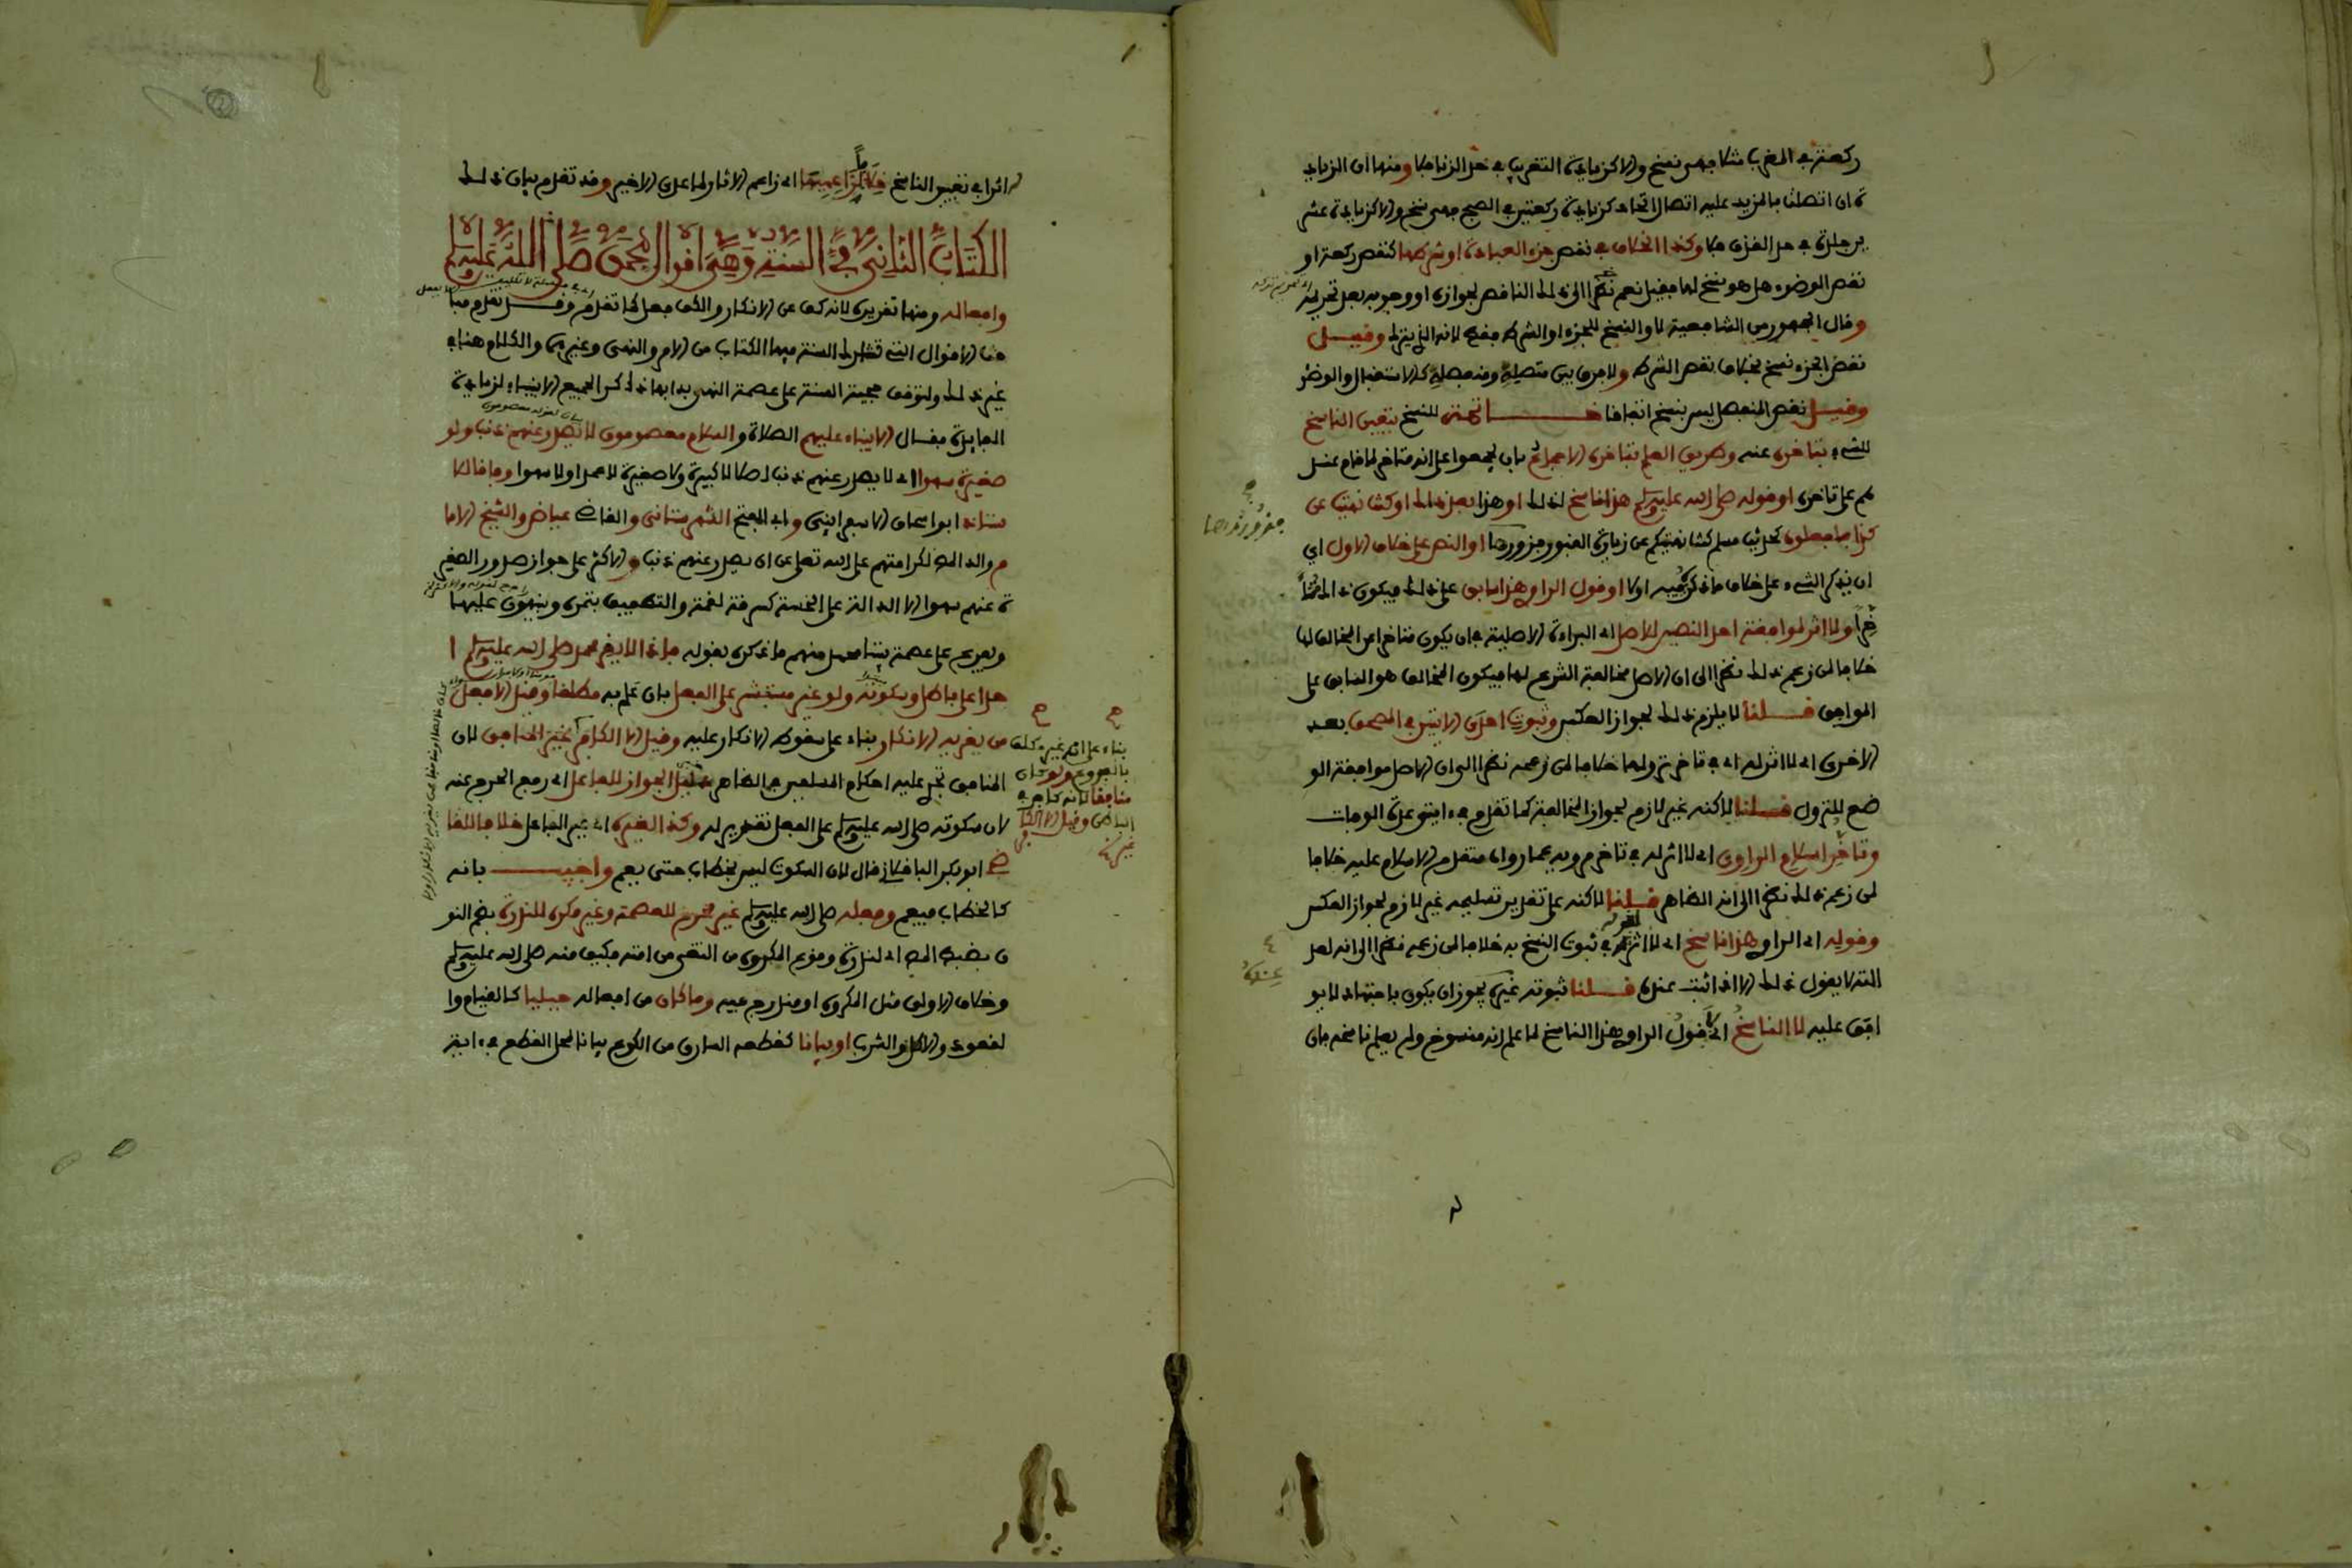 ركعة في المغرب مثلا فهي نسخ والا كزيادة التغريب في حد الزنا فلا ومنها ان الزياد
ة ان اتصلت بالمزيد عليه اتصال اتحاد كزيادة ركعتين في الصبح فهي نسخ والا كزيادة عشر
ين جلدة في حد القذف فلا وكذا الخلاف في نقص جزء العبادة او شرطها كنقص ركعة او
نقص الوضوء هل هو نسخ لها فقيل نعم نظرا الى ذلك الناقص لجوازه او وجوبه بعد تحريمه
وقال الجمهور من الشافعية لا والنسخ للجزء او الشرط فقط لانه الذي يترك وقيل
نقص الجزء نسخ بخلاف نقص الشرط ولا فرق بين متصله ومنفصله كالاستقبال والوضوء
وقيل نقص المنفصل ليس بنسخ اتفاقا خاتمة للنسخ يتعين الناسخ
للشيء بتأخره عنه وطريق العلم بتأخره الاجماع بان يجمعوا على انه متأخر لما قام عند
هم على تأخره او قوله صلى الله عليه وسلم هذا ناسخ لذلك او هذا بعد ذلك او كنت نهيت عن
كذا فافعلوه كحديث مسلم كنت نهيتكم عن زيارة القبور فزوروها او النص على خلاف الاول اي
ان يذكر الشيء على خلاف ما ذكر فيه اولا او قول الراوي هذا سابق على ذلك فيكون ذاك متأ
خرا ولا اثر لموافقة احد النصين للاصل اي البراءة الاصلية في ان يكون متأخرا عن المخالف لها
خلافا لمن زعم ذلك نظرا الى ان الاصل مخالفة الشرع لها فيكون المخالف هو السابق على
الموافق قلنا لا يلزم ذلك لجواز العكس وثبوت احدى الايتين في المصحف بعد
الاخرى اي لا اثر له اي في تأخر نزولها خلافا لمن زعمه نظرا الى ان الاصل موافقة الو
ضع للنزول قلنا لاكنه غير لازم لجواز المخالفة كما تقدم في ايتي عدة الوفات
وتأخر اسلام الراوي اي لا اثر له في تأخر مرويه عما رواه متقدم الاسلام عليه خلافا
لمن زعم ذلك نظرا الى انه الظاهر قلنا لاكنه على تقدير تسليمه غير لازم لجواز العكس
وقوله اي الراوي هذا ناسخ اي لا اثر لقوله في ثبوت النسخ به خلافا لمن زعمه نظرا الى انه لعد
الته لا يقول ذلك الا اذا ثبت عنده قلنا ثبوته عنده يجوز ان يكون باجتهاد لا يو
افق عليه لا الناسخ اي لا قول الراوي هذا الناسخ لما علم انه منسوخ ولم يعلم ناسخه فان
فزوروها
عنده
له اثرا في تعيين الناسخ خلافا لزاعميها اي زاعم الاثار لما عدى الاخير وقد تقدم بيان ذلك
الكتاب الثاني في السنة وهي اقوال محمد صلى الله عليه وسلم
وافعاله ومنها تقريره لانه كف عن الانكار والكف فعل كما تقدم وقد تقدم مبا
حث الاقوال التي تشارك السنة فيها الكتاب من الامر والنهي وغيرهما والكلام هنا في
غير ذلك ولتوقف حجية السنة على عصمة النبي بدأ بها ذاكرا لجميع الانبياء لزيادة
الفايدة فقال الانبياء عليهم الصلاة والسلام معصومون لا يصدر عنهم ذنب ولو
صغيرة سهوا اي لا يصدر عنهم ذنب اصلا لا كبيرة ولا صغيرة لا عمدا ولا سهوا وفاقا للا
ستاذ ابو اسحاق الاسفرايني وابي الفتح الشهرستاني والقاضي عياض والشيخ الاما
م والد المص لكرامتهم على الله تعلى عن ان يصدر عنهم ذنب والاكثر على جواز صدور الصغير
ة عنهم سهوا الا الدالة على الخسة كسرقة لقمة والتطفيف بتمرة وينبهون عليها
ويفرع على عصمة نبينا محمد منهم ما ذكره بقوله فاذا لا يقر محمد صلى الله عليه وسلم ا
حدا على باطل وسكوته ولو غير مستبشر على الفعل بان علم به مطلقا وقيل الا فعل
من يغريه الانكار بناء على سقوط الانكار عليه وقيل الا الكافر غير المنافق لان
المنافق تجري عليه احكام المسلمين في الظاهر دليل الجواز للفاعل اي رفع الحرج عنه
لان سكوته صلى الله عليه وسلم على الفعل تقرير له وكذا لغيره اي غير الفاعل خلافا للقا
ضي ابو بكر الباقلاني قال لان السكوت ليس بخطاب حتى يعم واجيب بانه
كالخطاب فيعم وفعله صلى الله عليه وسلم غير محرم للعصمة وغير مكروه للندرة بضم النو
ن بضبط المص اي لندرة وقوع المكروه من التقي من امته فكيف منه صلى الله عليه وسلم
وخلاف الاولى مثل المكروه او مندرج فيه وما كان من افعاله جبليا كالقيام وا
لقعود والاكل والشرب او بيانا كقطعه السارق من الكوع بيانا لمحل القطع في اية
بناء على انه غير مكلف
بالفروع ولو كان
منافقا لانه كافر في
الباطن وقيل الا الكا
فر